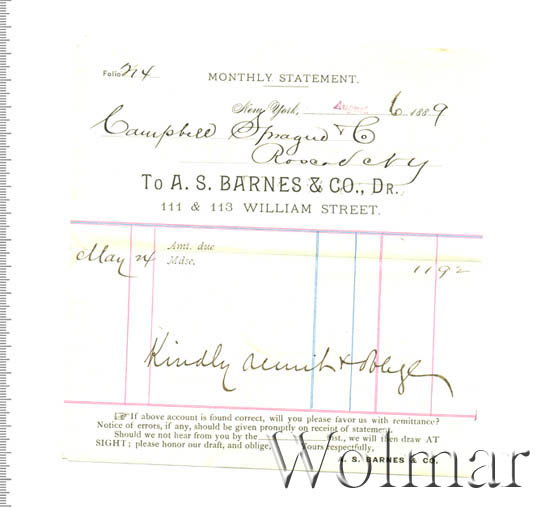 Folio 214
MONTHLY STATEMENT.
New York, August 6 1889
Campbell Sprague & C
NY
To A. S. BARNES & CO., DR.
111 & 113 WILLIAM STREET.
Amt. due
May 24 Mdse. 1192
Kindly remit & oblige
☞ If above account is found correct, will you please favor us with remittance?
Notice of errors, if any, should be given promptly on receipt of statement.
Should we not hear from you by the inst., we will then draw AT
SIGHT; please honor our draft, and oblige, Yours respectfully,
A. S. BARNES & CO.
Wolmar